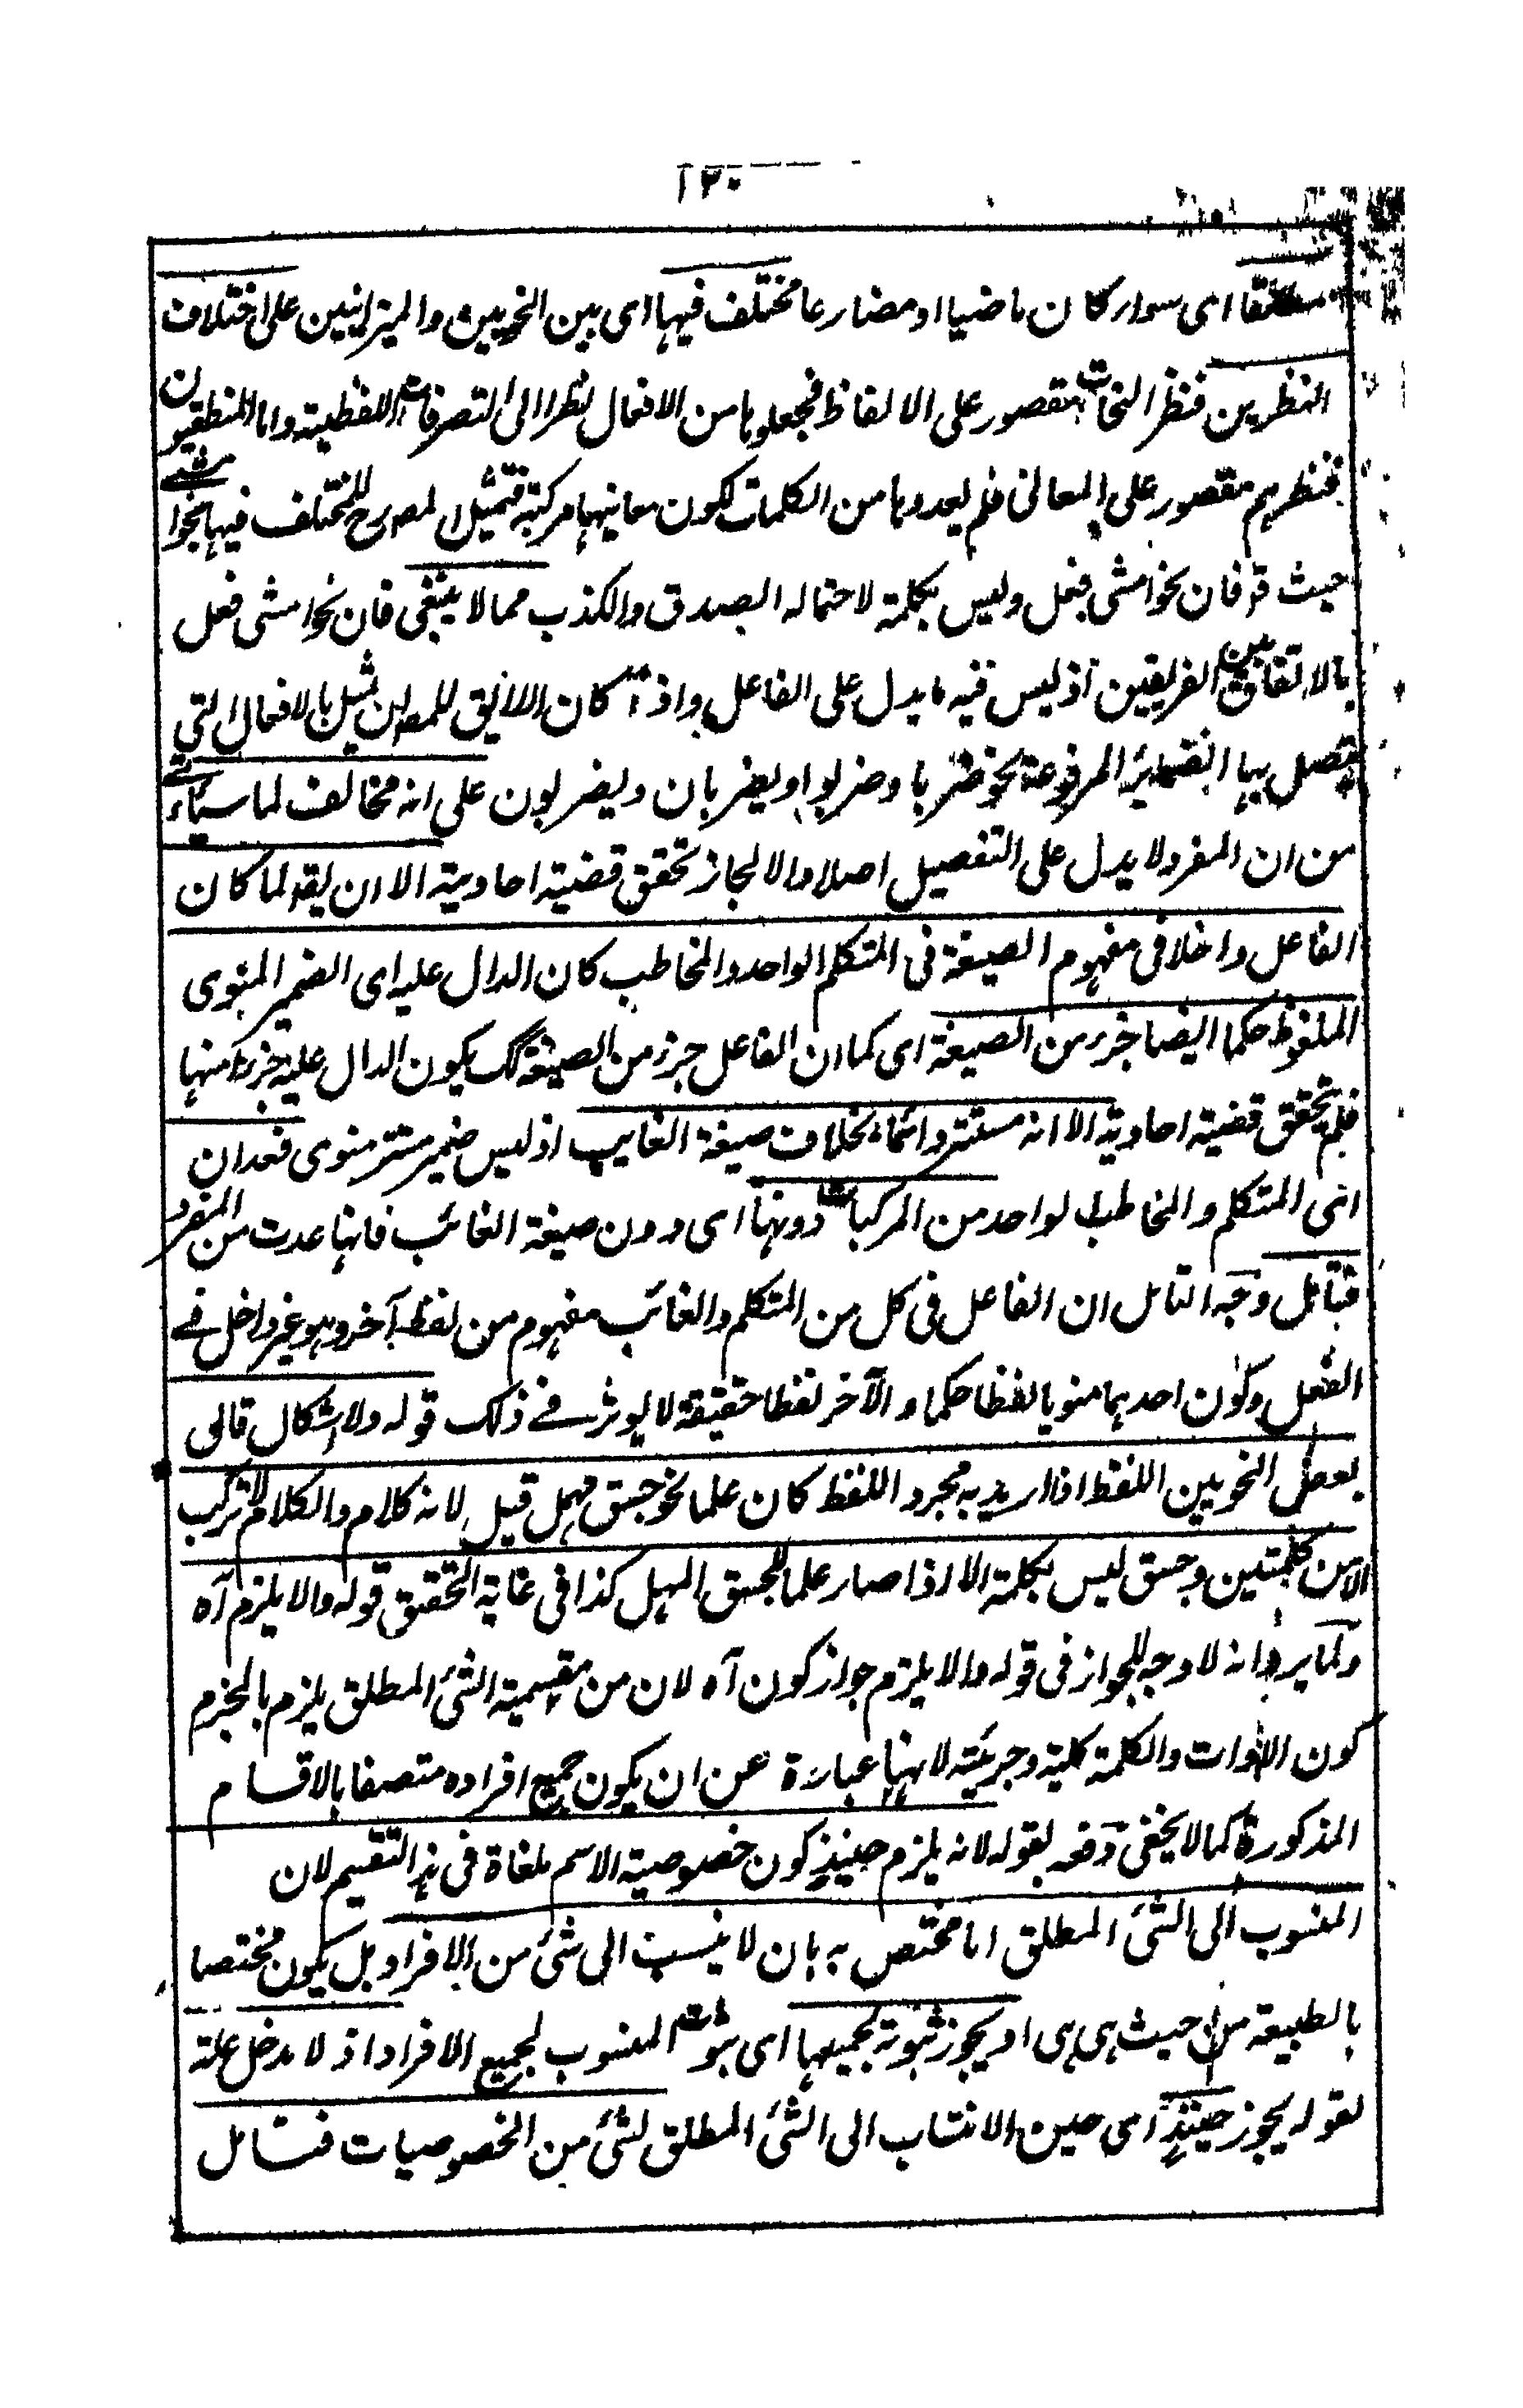 ١٢٠
مطلقا اى سواء كان ماضيا او مضارعا مختلف فيها اى بين النحويين والميزانيين على اختلاف
النظرين فنظر النحات مقصور على الالفاظ فجعلوها من الافعال نظرا الى التصرفات اللفظية واما المنطقيون
فنظرهم مقصور على المعانى فلم يعدوها من الكلمات لكون معانيها مركبة فتمثيل المصرح للمختلف فيها بنحو امشى
حيث قال فان نحو امشى فعل وليس بكلمة لاحتماله الصدق والكذب مما لا ينبغى فان نحو امشى فعل
بالاتفاق بين الفريقين اذ ليس فيه ما يدل على الفاعل واذ كان الاليق للمص ان يمثل بالافعال التى
يتصل بها الضمائر المرفوعة نحو ضربا وضربوا ويضربان ويضربون على انه مخالف لما سيأتى
من ان المفرد لا يدل على التفصيل اصلا والا لجاز تحقق قضية احادية الا ان يقه لما كان
الفاعل داخلا فى مفهوم الصيغة فى المتكلم الواحد والمخاطب كان الدال عليه اى الضمير المنوى
الملفوظ حكما ايضا جزء من الصيغة اى كما ان الفاعل جزء من الصيغة كك يكون الدال عليه جزء منها
فلم يتحقق قضية احادية الا انه مستتر دائما بخلاف صيغة الغايب اذ ليس ضمير مستتر منوى فعدان
اى المتكلم والمخاطب لواحد من المركبات دونها اى دون صيغة الغائب فانها عدت من المفرد
فتأمل وجه التامل ان الفاعل فى كل من المتكلم والغائب مفهوم من لفظ آخر وهو غير داخل فى
الفعل وكون احدهما منويا لفظا حكما والآخر لفظا حقيقة لا يوثر فى ذلك قوله ولا اشكال قال
بعض النحويين اللفظ اذا اريد به مجرد اللفظ كان علما نحو جسق مهمل قيل لانه كلام والكلام لا تركب
الا من كلمتين وجسق ليس بكلمة الا اذا صار علما للجسق المهمل كذا فى غاية التحقيق قوله والا يلزم آه
ولما يرد انه لا وجه للجواز فى قوله والا يلزم جواز كون آه لان من مقسمية الشئ المطلق يلزم بالجزم
كون الادوات والكلمة كلية وجزئية لانها عبارة عن ان يكون جميع افراده متصفا بالاقسام
المذكورة كما لا يخفى دفعه بقوله لانه يلزم حينئذ كون خصوصية الاسم ملغاة فى هذا التقسيم لان
المنسوب الى الشئ المطلق اما مختص به بان لا ينسب الى شئ من الافراد بل يكون مختصا
بالطبيعة من حيث هى هى او يجوز ثبوته لجميعها اى ثبوت المنسوب لجميع الافراد اذ لا مدخل علة
لقوله يجوز حينئذ اى حين الانتساب الى الشئ المطلق لشئ من الخصوصيات فتامل